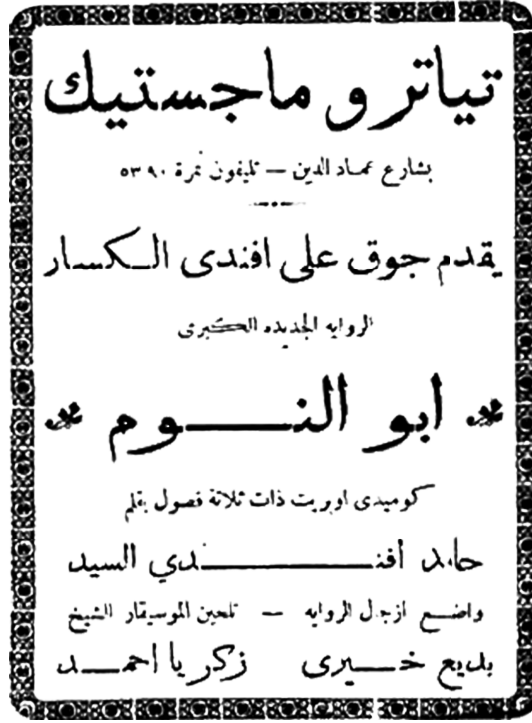 تياترو ماجستيك
بشارع عماد الدين — تليفون نمرة ٥٣٩٠
يقدم جوق على افندى الكسار
الروايه الجديده الكبرى
أبو النوم
كوميدى اوبريت ذات ثلاثة فصول بقلم
حامد أفندي السيد
واضع ازجال الروايه — تلحين الموسيقار الشيخ
بديع خيرى زكريا احمد